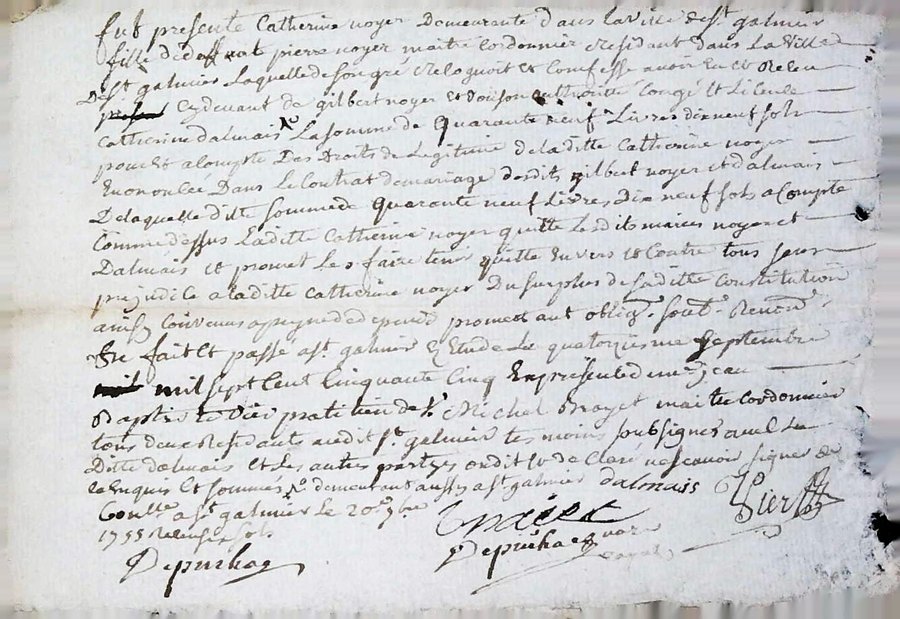 fut presente Catherine noyer Demeurante dans La ville de st. galmier
fille de deffunt pierre noyer maitre Cordonnier Residant dans La Ville
De st galmier Laquelle de son gré Recognoit et Comfesse avoir Eu et Receu
Cydevant de gilbert noyer et De son authorité Congé et Licence
Catherine dalmais La somme de Quarante neuf Livres dix neuf sols
pour et a Compte Des Droits de Legitime de la ditte Catherine noyer
Enoncée Dans Le Contrat de mariage desdits gilbert noyer et dalmais
De laquelle ditte somme de Quarante neuf Livres Dix neuf sols a Compte
Comme dessus Laditte Catherine noyer quitte Lesdits maries noyer et
Dalmais et promet Les faire tenir quitte Envers et Contre tous sans
prejudice a laditte Catherine noyer Du surplus de saditte Constitution
ainsy Convenus a peyne de promettant oblig. soub. Renon.
fait et passé a st galmier Etude Le quatorzieme septembre
mil sept Cent Cinquante Cinq En presence de me jean
Baptiste pratitien de sr. Michel Brayet maitre Cordonnier
tous deux Residants audit st. galmier temoins soubsignes avec La
Ditte dalmais et Les autres partyes ont dit et declare ne scavoir signer de
ce Enquis et sommés demeurant aussy a st galmier dalmais
Conllé a st galmier Le 20e. 7bre
1755 Receu sols
Depuishac Depuishac